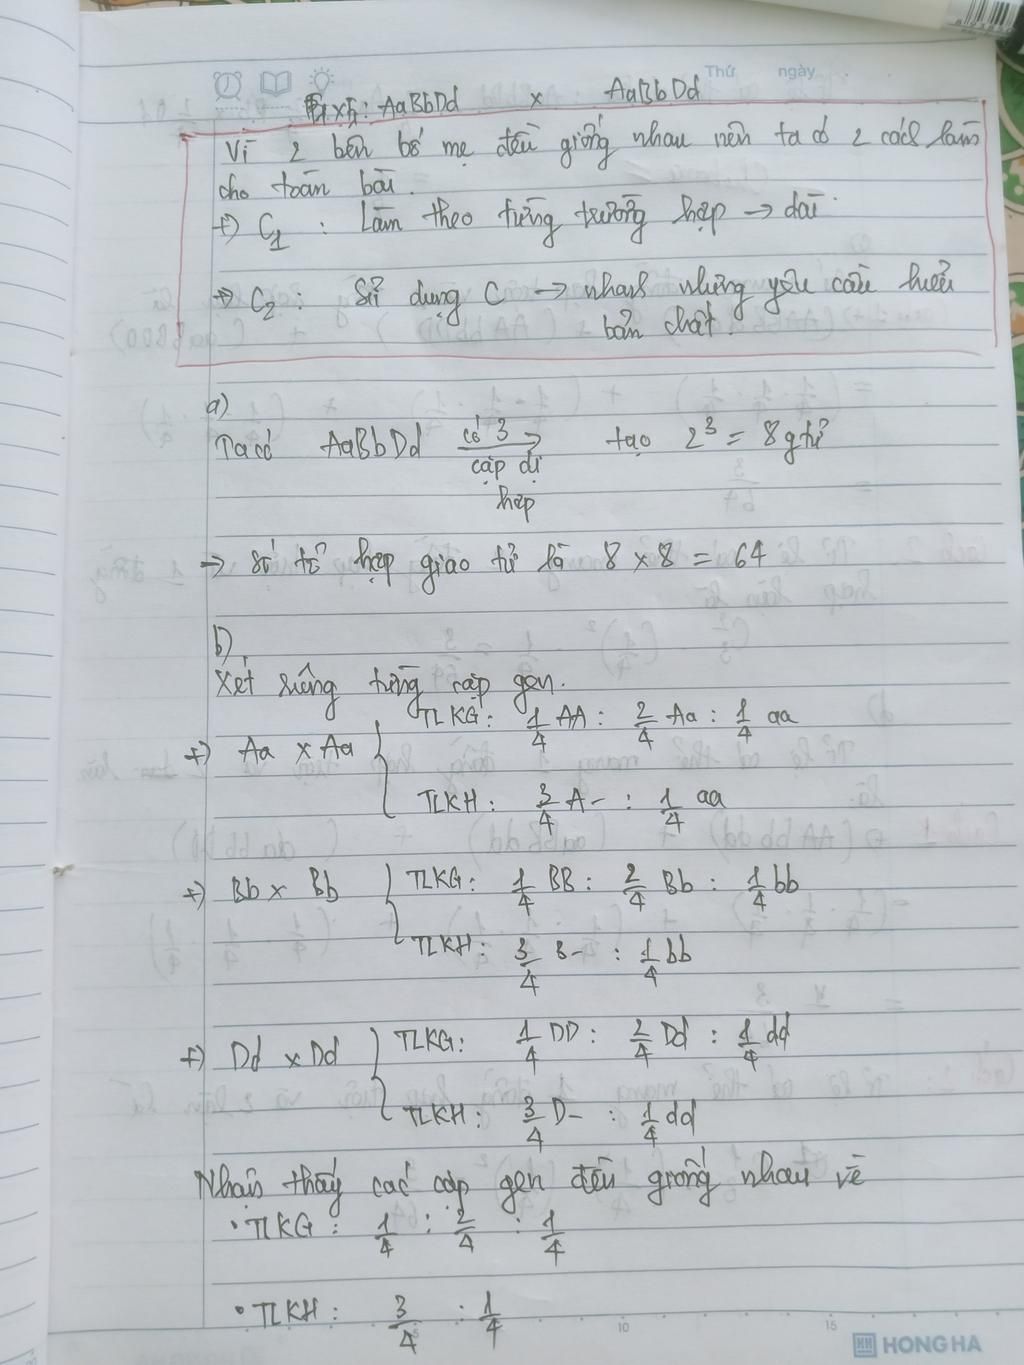 Thứ ngày
F1 x F1: AaBbDd x AaBbDd
Vì 2 bên bố mẹ đều giống nhau nên ta có 2 cách làm
cho toàn bài.
+) C1 : Làm theo từng trường hợp → dài.
+) C2 : Sử dụng C → nhanh nhưng yêu cầu hiểu
bản chất.
a)
Ta có AaBbDd có 3 cặp dị hợp → tạo 2³ = 8 gtử
→ Số tổ hợp giao tử là 8 x 8 = 64
b)
Xét riêng từng cặp gen.
+) Aa x Aa { TLKG: 1/4 AA : 2/4 Aa : 1/4 aa
TLKH: 3/4 A- : 1/4 aa
+) Bb x Bb { TLKG: 1/4 BB : 2/4 Bb : 1/4 bb
TLKH: 3/4 B- : 1/4 bb
+) Dd x Dd { TLKG: 1/4 DD : 2/4 Dd : 1/4 dd
TLKH: 3/4 D- : 1/4 dd
Nhận thấy các cặp gen đều giống nhau về
• TLKG: 1/4 : 2/4 : 1/4
• TLKH: 3/4 : 1/4
5 10 15
HONG HA